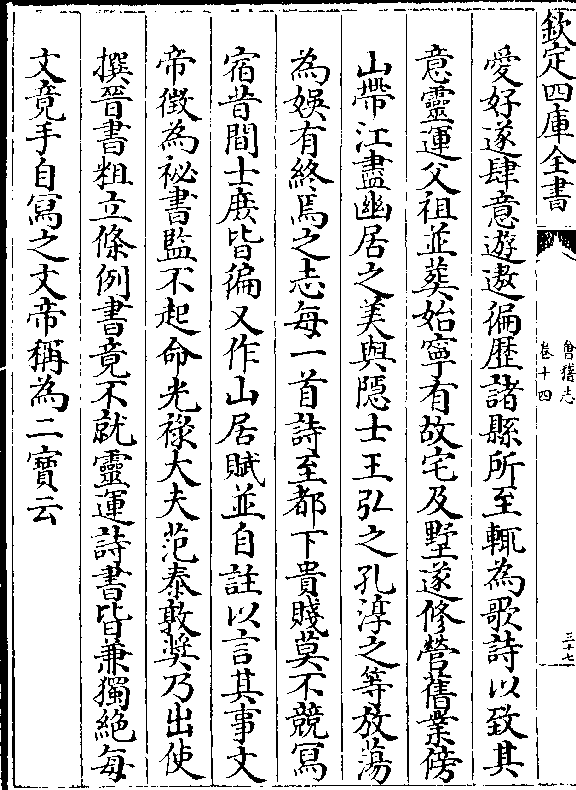 欽定四庫全書
會稽志
卷十四
三十七
愛好遂肆意遊遨徧歴諸縣所至輒為歌詩以致其
意靈運父祖並葬始寧有故宅及墅遂修營舊業傍
山帶江盡幽居之美與隱士王弘之孔淳之等放蕩
為娛有終焉之志每一首詩至都下貴賤莫不競冩
宿昔間士庶皆徧又作山居賦並自註以言其事文
帝徵為祕書監不起命光祿大夫范泰敦奬乃出使
撰晉書粗立條例書竟不就靈運詩書皆兼獨絶每
文竟手自冩之文帝稱為二寶云